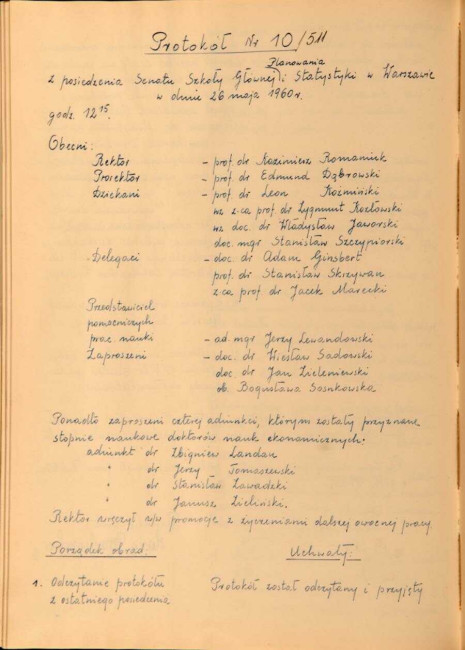 Protokół Nr 10/5M
Planowania
z posiedzenia Senatu Szkoły Głównej i Statystyki w Warszawie
w dniu 26 maja 1960r.
godz. 12¹⁵.
Obecni:
Rektor - prof. dr Kazimierz Romaniuk
Prorektor - prof. dr Edmund Dąbrowski
Dziekani - prof. dr Leon Koźmiński
wz z-ca prof. dr Zygmunt Kozłowski
wz doc. dr Władysław Jaworski
doc. mgr Stanisław Szczypiorski
Delegaci - doc. dr Adam Ginsbert
prof. dr Stanisław Skrzywan
z-ca prof. dr Jacek Marecki
Przedstawiciel
pomocniczych
prac. nauki - ad. mgr Jerzy Lewandowski
Zaproszeni - doc. dr Wiesław Sadowski
doc. dr Jan Zieleniewski
ob. Bogusława Sosnkowska
Ponadto zaproszeni czterej adiunkci, którym zostały przyznane
stopnie naukowe doktorów nauk ekonomicznych.
adiunkt dr Zbigniew Landau
" dr Jerzy Tomaszewski
" dr Stanisław Zawadzki
" dr Janusz Zieliński.
Rektor wręczył w/w promocje z życzeniami dalszej owocnej pracy
Porządek obrad: Uchwały:
1. Odczytanie protokółu Protokół został odczytany i przyjęty
z ostatniego posiedzenia